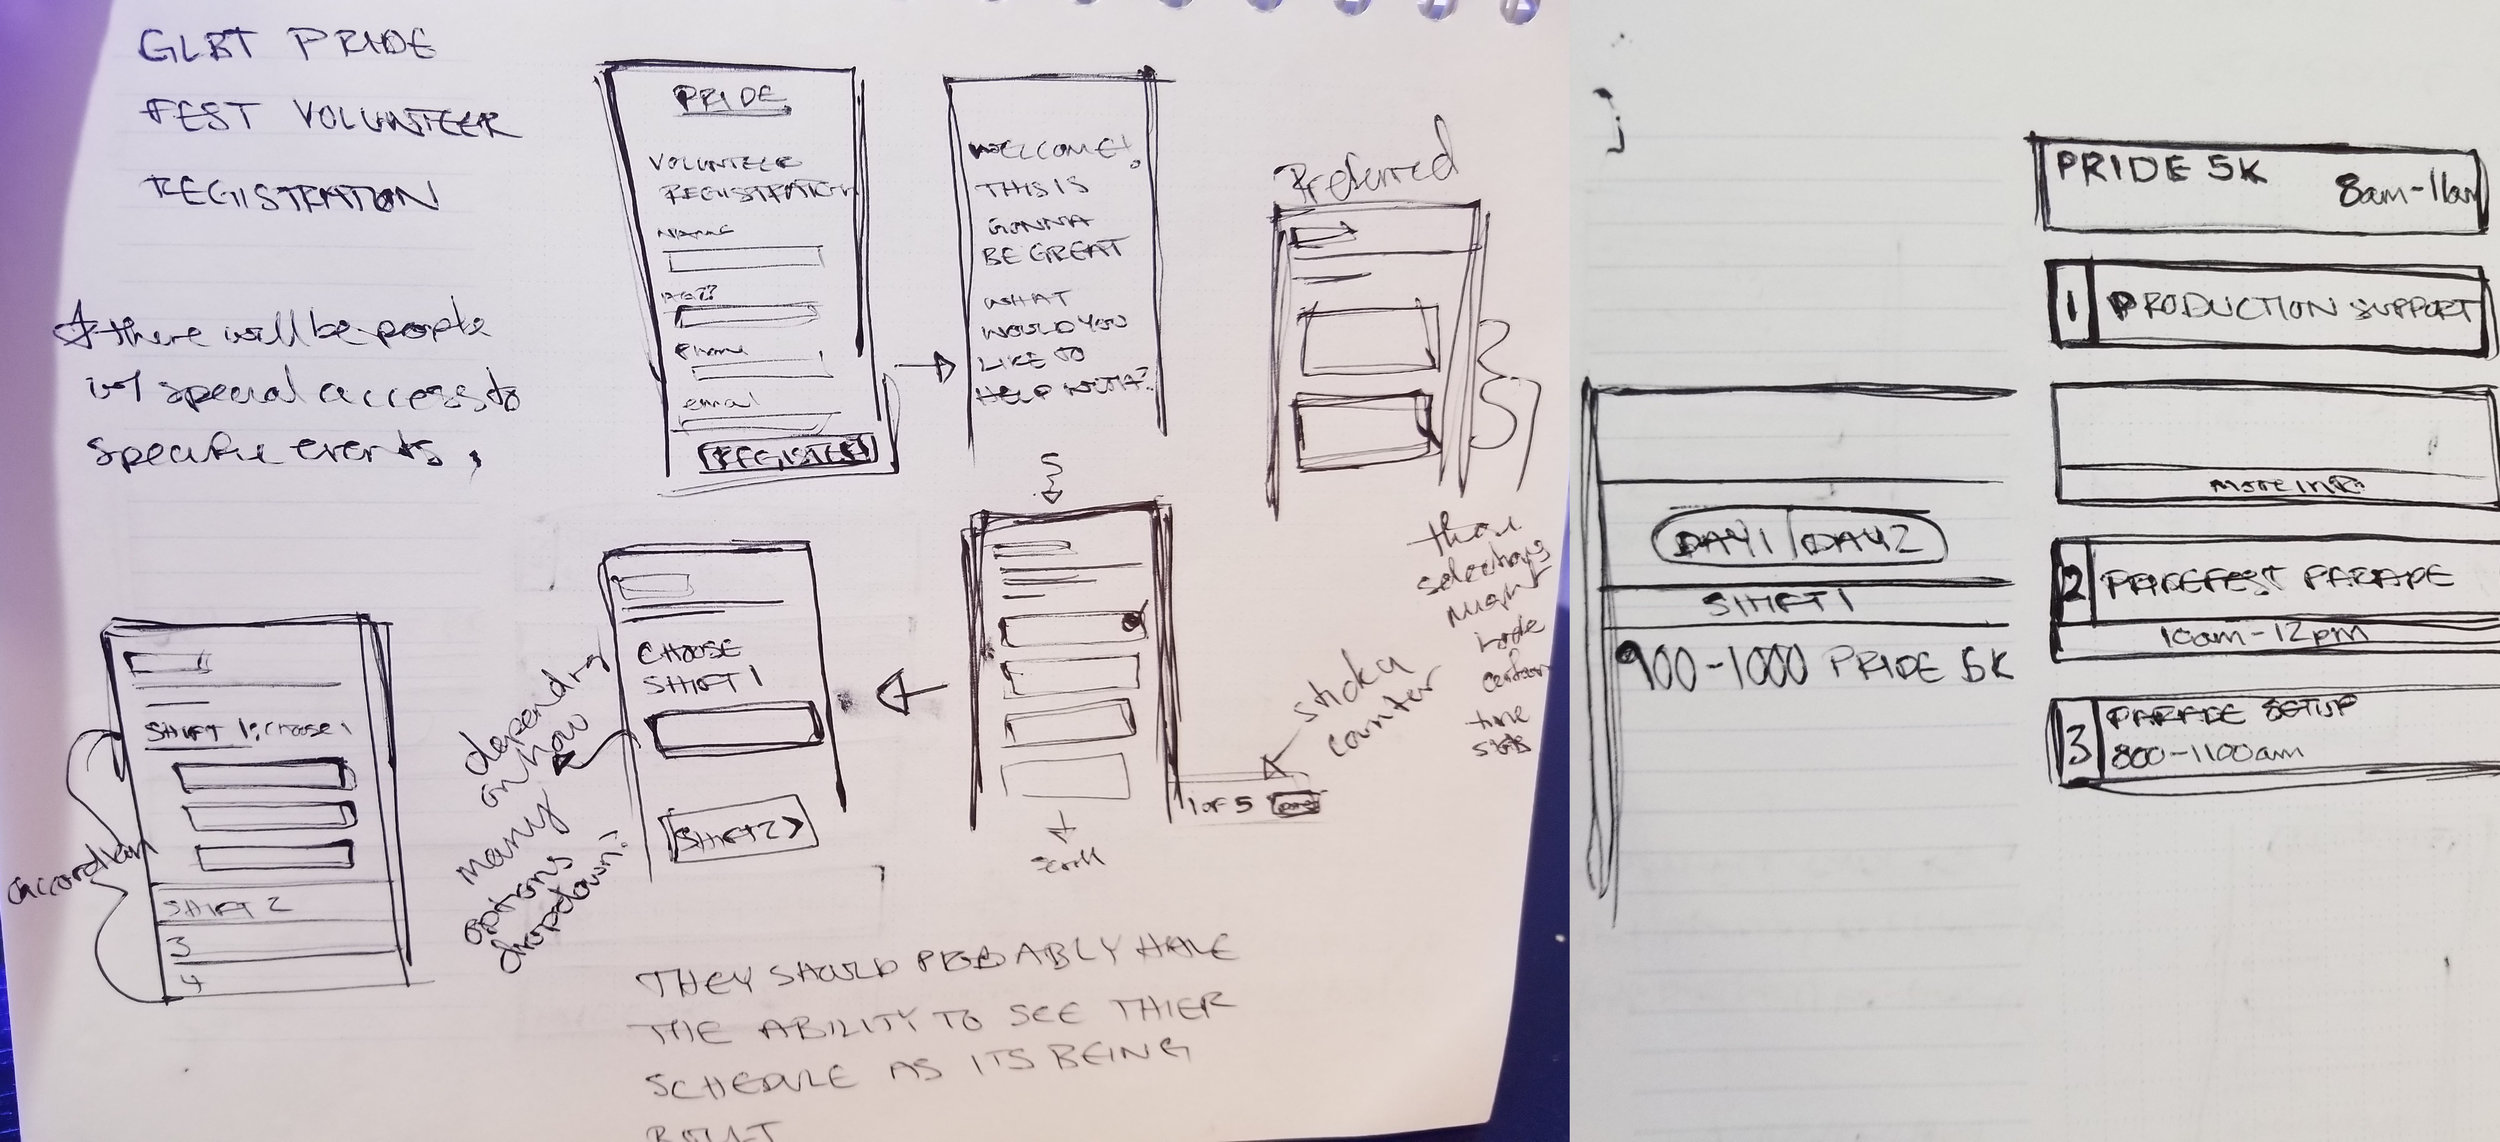 GLBT PRIDE
FEST VOLUNTEER
REGISTRATION
* there will be people
w/ special access to
specific events,
PRIDE
VOLUNTEER
REGISTRATION
NAME
Phone
email
REGISTER
WELCOME!
THIS IS
GONNA
BE GREAT
WHAT
WOULD YOU
LIKE TO
HELP WITH?
Preferred
their
selections
might
have
certain
time
slots
sticky
counter
1 OF 5
scroll
CHOOSE
SHIFT 1
SHIFT 2 >
depending
on how
many
options
dropdown?
SHIFT 1: choose 1
SHIFT 2
3
4
accordian
THEY SHOULD PROBABLY HAVE
THE ABILITY TO SEE THIER
SCHEDULE AS ITS BEING
BUILT
DAY 1 | DAY 2
SHIFT 1
900-1000 PRIDE 5K
PRIDE 5K
8am-11am
1 PRODUCTION SUPPORT
MORE INFO
2 PRIDEFEST PARADE
10am-12pm
3 PARADE SETUP
800-1100am